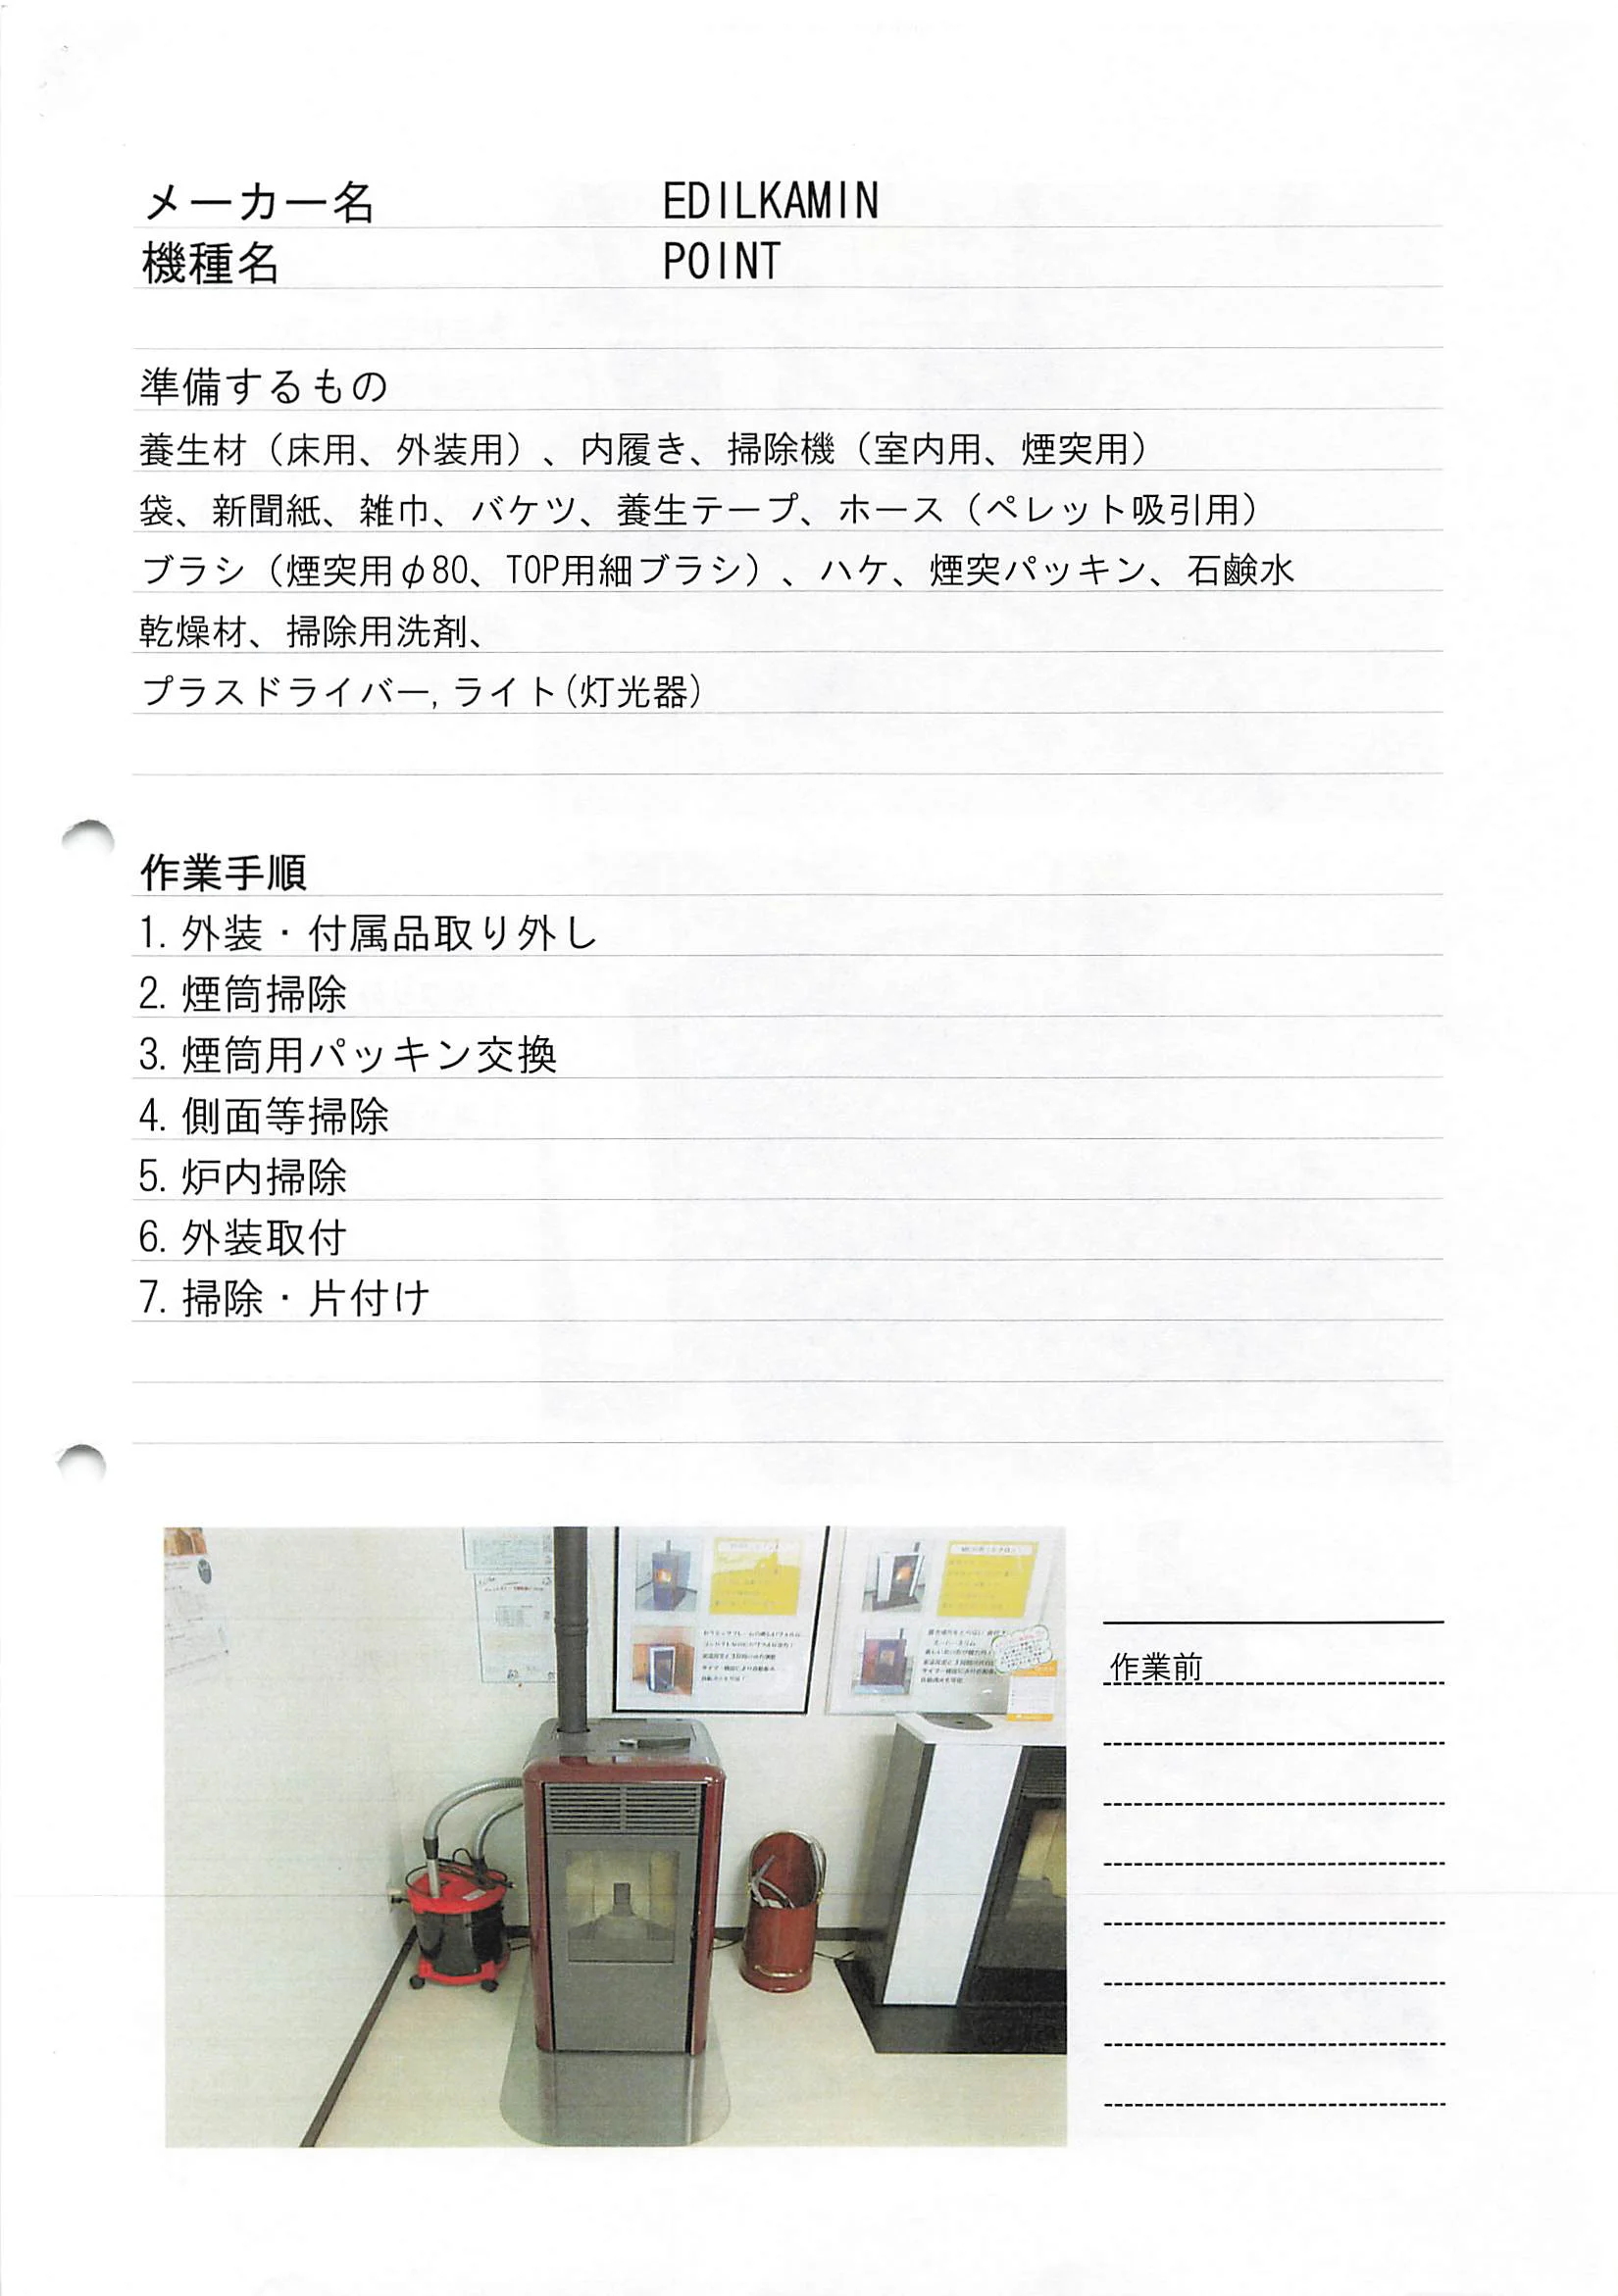 メーカー名 EDILKAMIN
機種名 POINT
準備するもの
養生材（床用、外装用）、内履き、掃除機（室内用、煙突用）
袋、新聞紙、雑巾、バケツ、養生テープ、ホース（ペレット吸引用）
ブラシ（煙突用φ80、TOP用細ブラシ）、ハケ、煙突パッキン、石鹸水
乾燥材、掃除用洗剤、
プラスドライバー,ライト(灯光器)
作業手順
1. 外装・付属品取り外し
2. 煙筒掃除
3. 煙筒用パッキン交換
4. 側面等掃除
5. 炉内掃除
6. 外装取付
7. 掃除・片付け
作業前